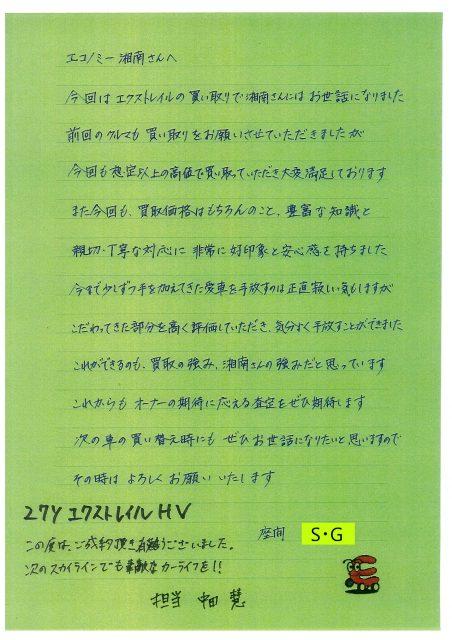 エコノミー湘南さんへ
今回は エクストレイルの買い取りで湘南さんには お世話になりました
前回のクルマも 買い取りをお願いさせていただきましたが
今回も想定以上の高値で買い取っていただき大変満足しております
また今回も、買取価格はもちろんのこと、豊富な知識と
親切・丁寧な対応に 非常に好印象と安心感を持ちました
今まで少しずつ手を加えてきた愛車を手放すのは正直寂しい気もしますが
こだわってきた部分を高く評価していただき、気分よく手放すことができました
これができるのも、買取の強み、湘南さんの強みだと思っています
これからも オーナーの期待に応える査定をぜひ期待します
次の車の買い替え時にも ぜひお世話になりたいと思いますので
その時は よろしくお願いいたします
座間 S・G
27Y エクストレイル HV
この度は、ご成約頂き有難うございました。
次のスカイラインでも素敵なカーライフを!!
担当 中田 慧